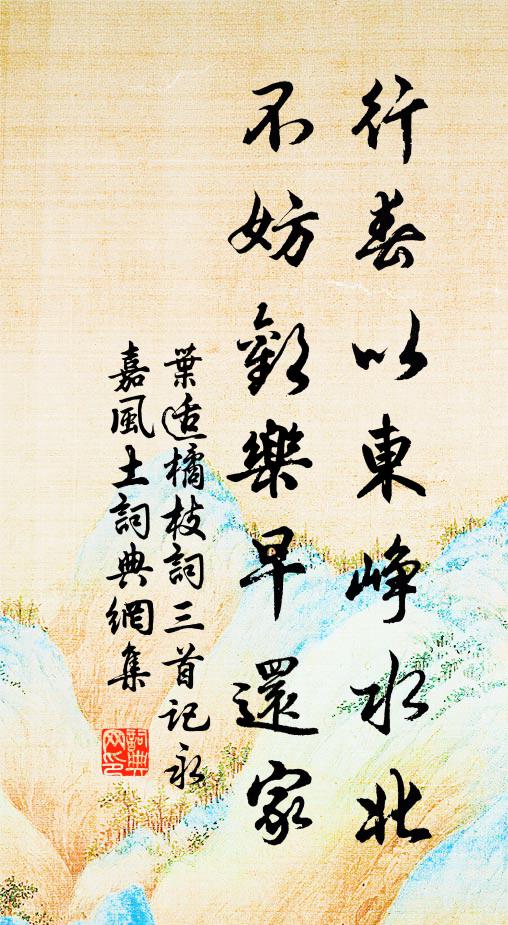 行春以東崢水北
不妨歡樂早還家
葉适橘枝詞三首記永
嘉風土詞典網集
詞典網印